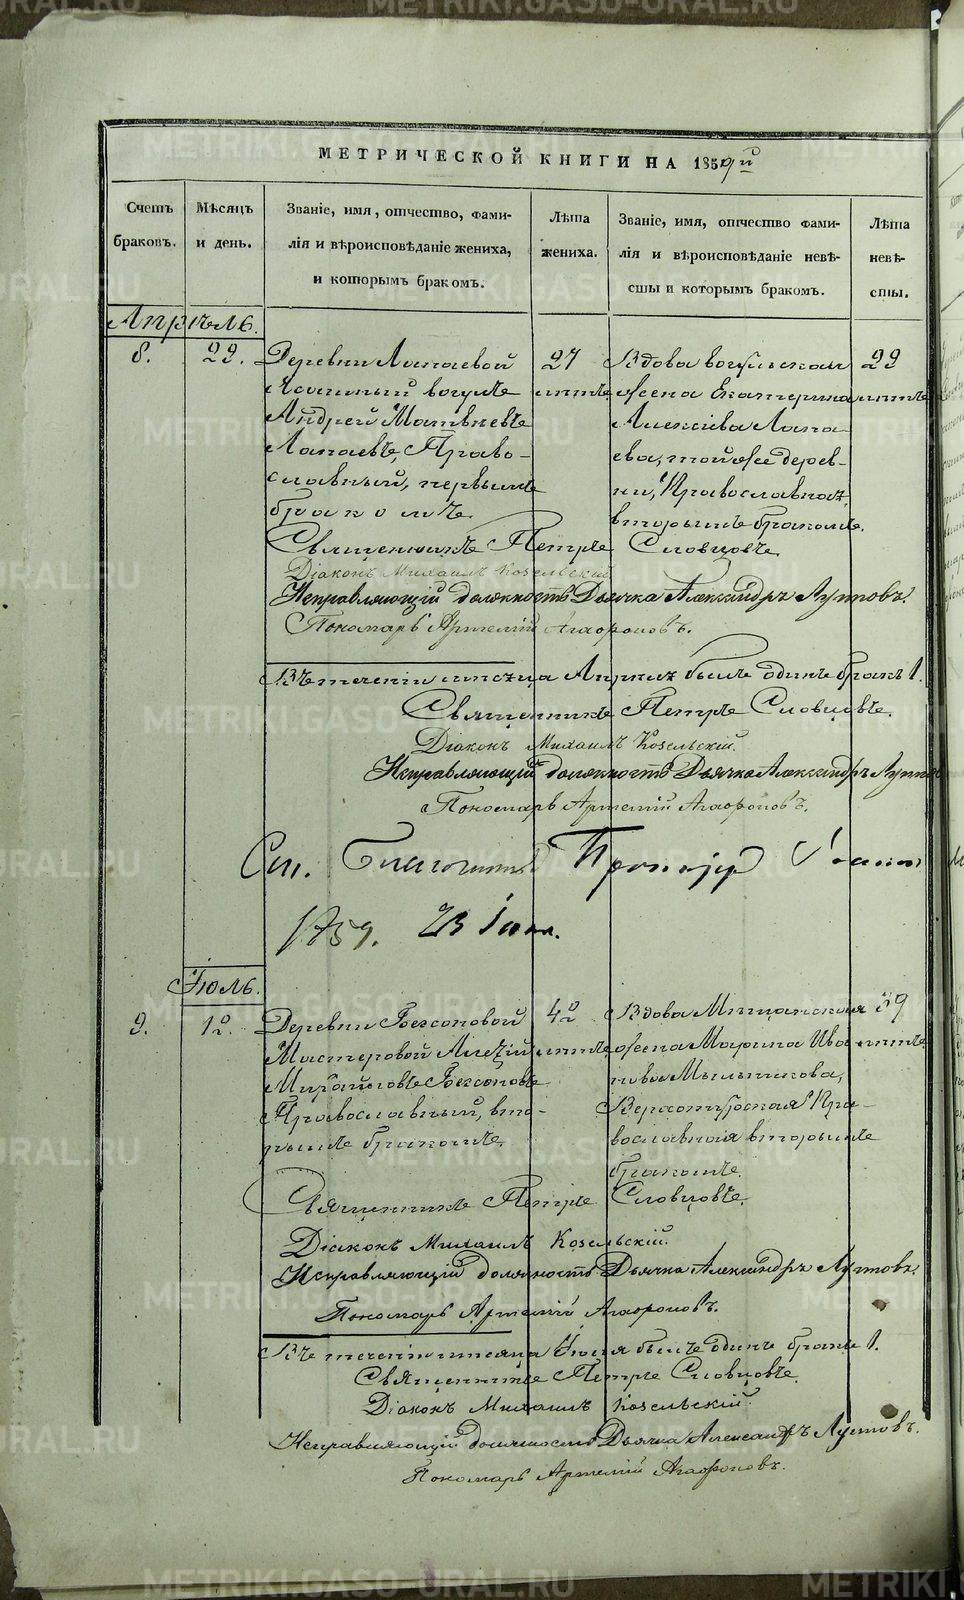 МЕТРИЧЕСКОЙ КНИГИ НА 1859й
Счетъ браковъ.
Мѣсяцъ и день.
Званіе, имя, отчество, фами-
лія и вѣроисповѣданіе жениха,
и которымъ бракомъ.
Лѣта
жениха.
Званіе, имя, отчество фами-
лія и вѣроисповѣданіе невѣ-
сты и которымъ бракомъ.
Лѣта
невѣ-
сты.
Апрѣль.
8.
22.
Деревни Лапаевой
Ясашный вогулъ
Андрей Матвѣевъ
Лапаевъ, Право-
славный, первымъ
бракомъ.
27
лѣтъ
Вдова вогульская
жена Екатерина
Алексіева Лапа-
ева, той же дерев-
ни, Православная,
вторымъ бракомъ.
22
лѣтъ
Священникъ Петръ Словцовъ.
Діаконъ Михаилъ Козельскій
Исправляющій должность Дьячка Александръ Лутовъ.
Пономарь Артемій Агафоновъ.
Въ теченіи мѣсяца Апрѣля былъ одинъ бракъ 1.
Священникъ Петръ Словцовъ.
Діаконъ Михаилъ Козельскій.
Исправляющій должность Дьячка Александръ
Пономарь Артемій Агафоновъ.
1859. 23
Іюль.
9.
12.
Деревни
Мастеровой
Православный, вто-
рымъ бракомъ.
42
лѣтъ
Вдова Мѣщанская
жена Марина Ива-
нова Мыльникова,
Верхотурская Пра-
вославная вторымъ
бракомъ.
39
лѣтъ
Священникъ Петръ Словцовъ.
Діаконъ Михаилъ Козельскій.
Исправляющій должность Дьячка Александръ Лутовъ.
Пономарь Артемій Агафоновъ.
Въ теченіи мѣсяца Іюля былъ одинъ бракъ 1.
Священникъ Петръ Словцовъ.
Діаконъ Михаилъ Козельскій.
Исправляющій должность Дьячка Александръ Лутовъ.
Пономарь Артемій Агафоновъ.
METRIKI.GASO-URAL.RU